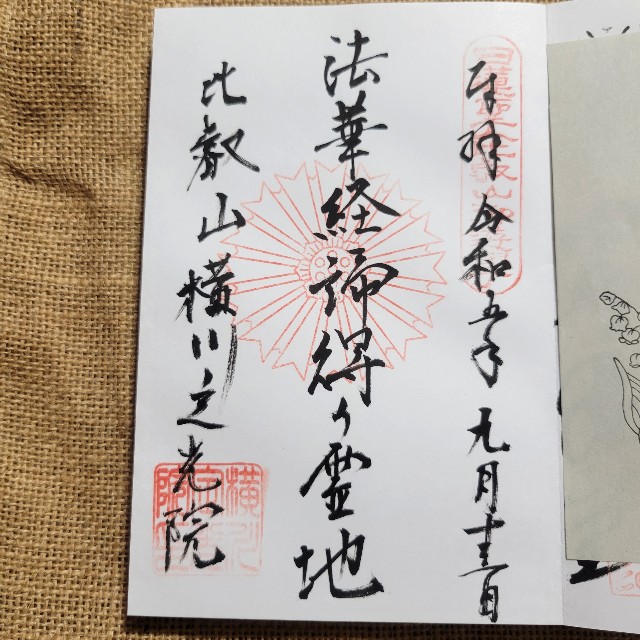 奉拝 令和五年 九月十三日
法華経諦得ヶ霊地
比叡山横川定光院